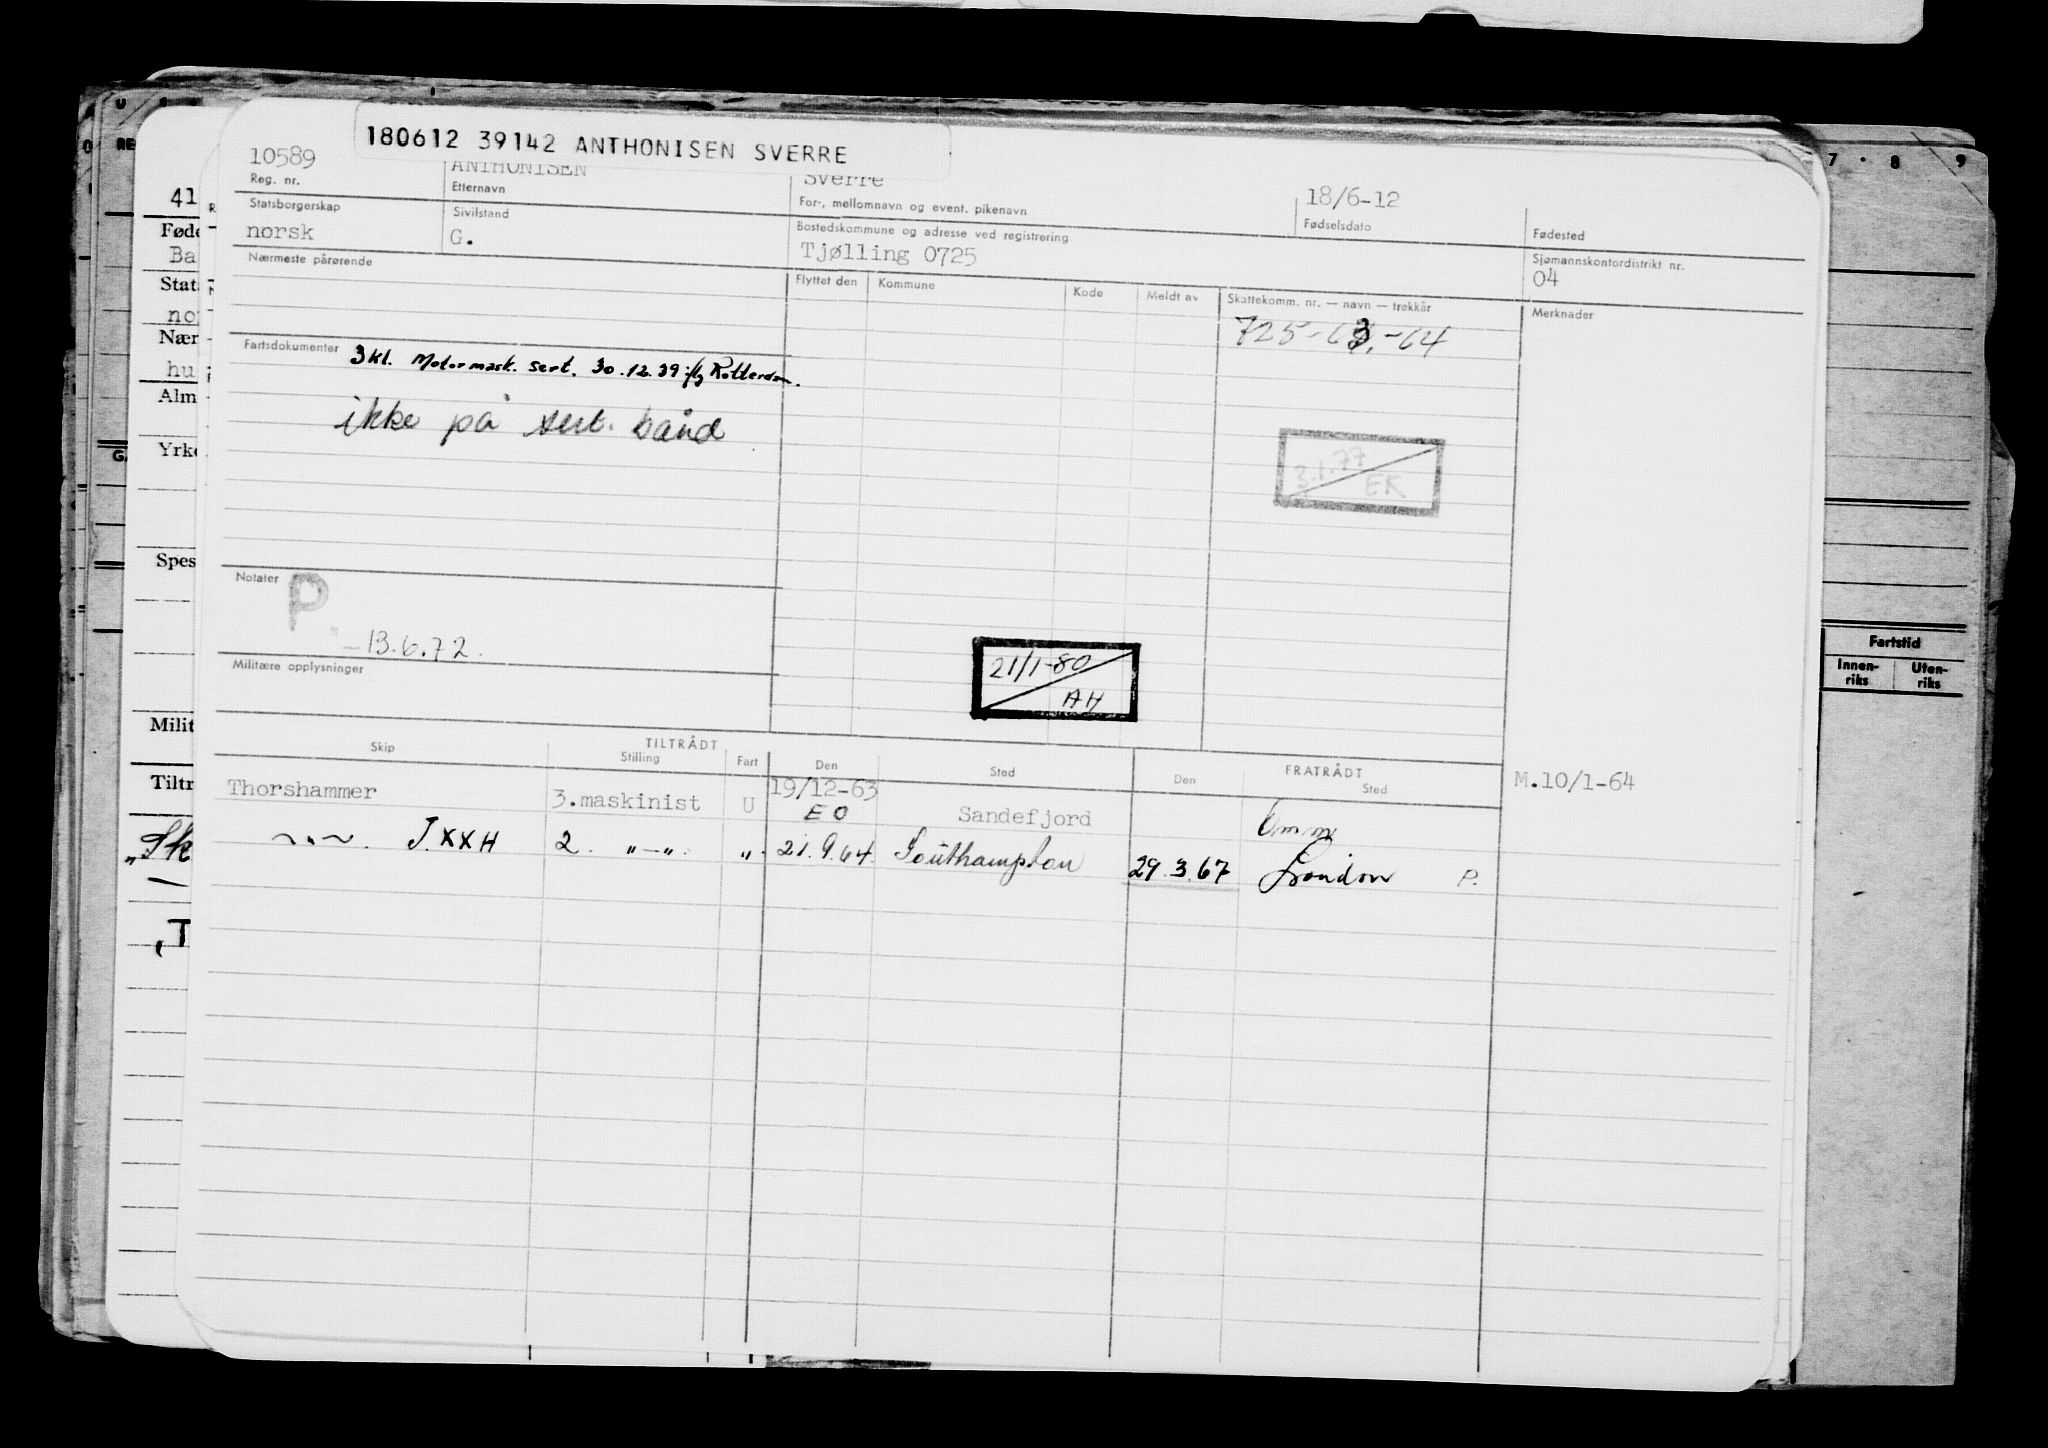 180612 39142 ANTHONISEN SVERRE
10589 ANTHONISEN Sverre 18/6-12
Reg. nr. Etternavn For-, mellomnavn og event. pikenavn Fødselsdato Fødested
Statsborgerskap Sivilstand Bostedskommune og adresse ved registrering Sjømannskontordistrikt nr.
norsk G. Tjølling 0725 04
Nærmeste pårørende Flyttet den Kommune Kode Meldt av Skattekomm. nr. — navn — trekkår Merknader
725-63.-64
Fartsdokumenter 3 kl. Motormask. sert. 30.12.39 Rotterdam.
ikke på sert. bånd
3.1.77
EK
Notater P
-13.6.72.
Militære opplysninger
21/1-80
AH
Skip TILTRÅDT Stilling Fart Den Sted FRATRÅDT Den Sted
Thorshammer 3.maskinist U 19/12-63 Sandefjord Omm M.10/1-64
EO
-"- J.XXH 2. "-" " 21.9.64 Southampton 29.3.67 London P.
41
Føde
Ba
Stat
no
Nær
hu
Alm
Yrke
Spes
Milit
Tiltr
"Sk
"T
7 · 8 9
Fartstid
Innen-riks Uten-riks